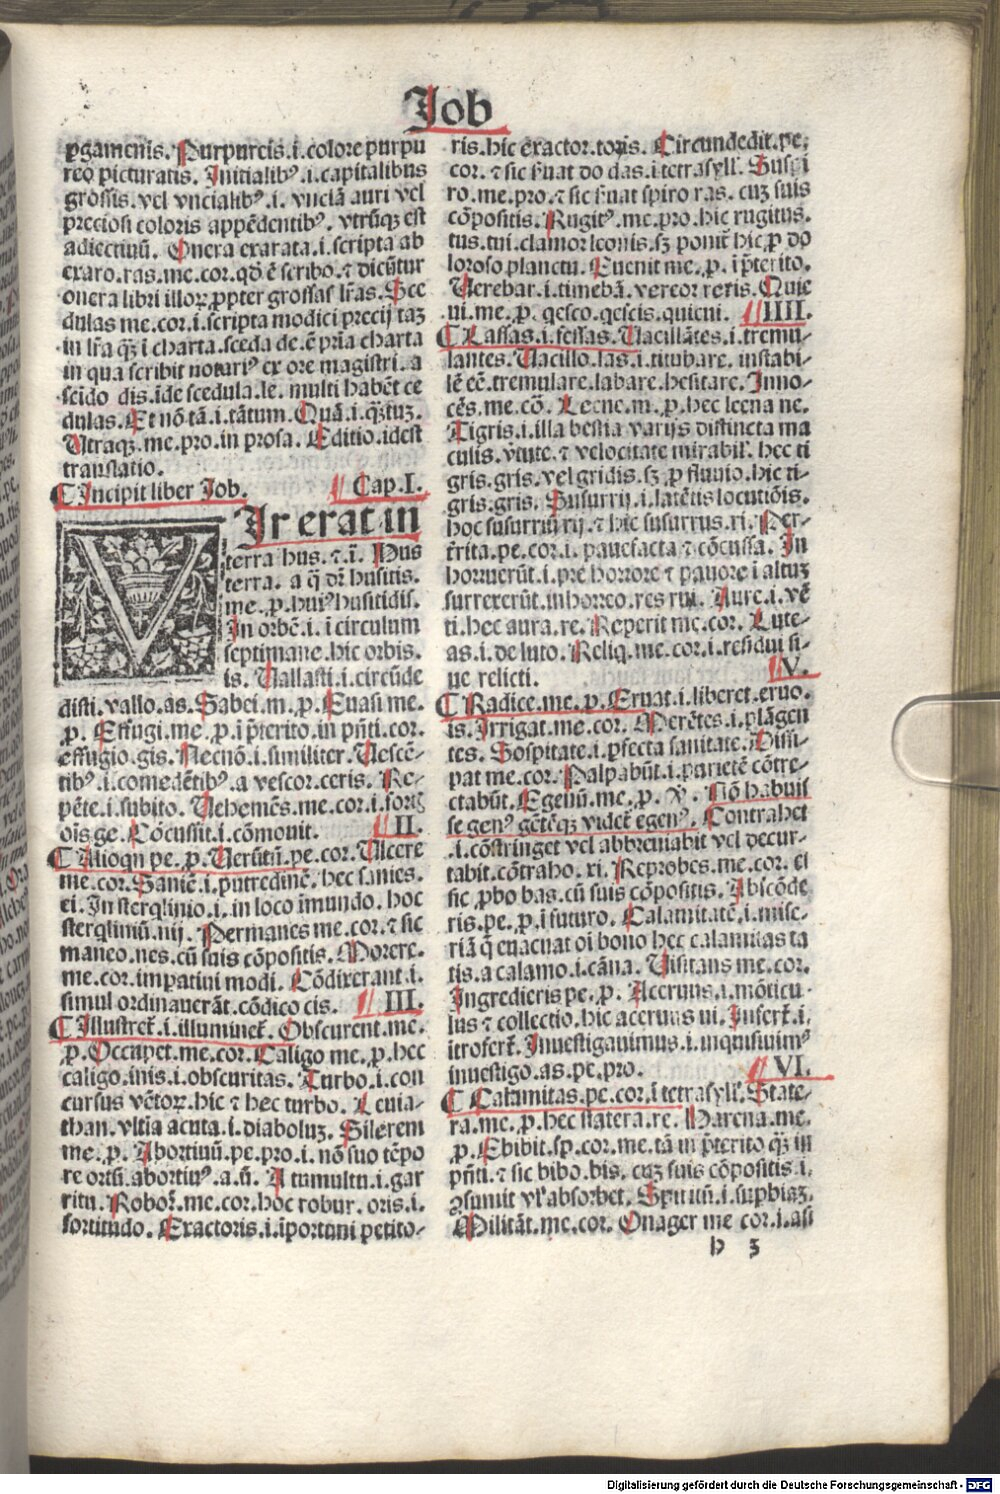 Job
ꝑgamenis. Purpureis.i.colore purpu
reo picturatis. Initialibꝰ.i.capitalibus
grossis. vel vncialibꝰ.i. vnciā auri vel
preciosi coloris appēdentibꝰ. vtrūqꝫ est
adiectiuū. Onera exarata.i.scripta ab
exaro.ras.me.cor.qđ ē scribo.⁊ dicūtur
onera libri illoꝝ ꝓpter grossas lr̄as. Sce
dulas me.cor.i.scripta modici precij taꝫ
in lr̄a qꝫ ī charta.sceda de.ē pria charta
in qua scribit notariꝰ ex ore magistri.a
scido dis.īde scedula.le. multi habēt ce
dulas. Et nō tā.i.tātum. Quā.i.qꝫtuꝫ.
Vtraqꝫ.me.pro.in prosa. Editio.idest
translatio.
Incipit liber Job. Cap.I.
VIr erat in
terra hus.⁊.ī. Hus
terra. a q̄ dr̄ husitis.
me.ꝓ.huiꝰ husitidis.
In orbē.i.ī circulum
septimane.hic orbis.
is. Vallasti.i.circūde
disti.vallo.as. Sabei.m.ꝓ. Euasi me.
ꝓ. Effugi.me.ꝓ.ī p̄terito.in pn̄ti.cor.
effugio.gis. Necnō.i.similiter. Vescē-
tibꝰ.i.comedētibꝰ.a vescor.ceris. Re-
pēte.i.subito. Vehemēs.me.cor.i.fortꝭ
oīs ge. Cōcussit.i.cōmouit. II.
Alioqn pe.ꝓ. Uerūtn̄.pe.cor. Vlcere
me.cor. Saniē.i.putredinē.hec sanies.
ei. In sterqlinio.i.in loco īmundo.hoc
sterqliniū.nij. Permanes me.cor.⁊ sic
maneo.nes.cū suis cōpositis. Morere.
me.cor.imꝑatiui modi. Cōdixerant.i.
simul ordinauerāt.cōdico cis. III.
Illustret̄.i.illuminet̄. Obscurent.me.
ꝓ. Occupet.me.cor. Caligo me.ꝓ.hec
caligo.inis.i.obscuritas. Turbo.i.con
cursus vētoꝝ.hic ⁊ hec turbo. Leuia-
than. vltia acuta.i.diaboluꝫ. Silerem
me.ꝓ. Abortiuū.pe.pro.i.nō suo tēpo
re ortū.abortiuꝰ.a.ū. A tumultu.i.gar
ritu. Robor̄.me.cor.hoc robur.oris.i.
fortitudo. Exactoris.i.īportuni petito-
ris.hic exactor.toris. Circundedit.pe;
cor.⁊ sic s̄uat do das.i.tetrasyll'. Suspi
ro.me.pro.⁊ sic s̄uat spiro ras. cuꝫ suis
cōpositis. Rugitꝰ.me.pro.hic rugitus.
tus.tui.clamor leonis.sꝫ ponit̄ hic ꝓ do
loroso planctu. Euenit me.ꝓ.ī p̄terito.
Verebar.i.timebā.vereor reris. Quie
ui.me.ꝓ. qesco.qescis.quieui. IIII.
Lassas.i.fessas. Vacillātes.i.tremu-
lantes. Vacillo.las.i.titubare. instabi-
lē eē.tremulare.labare.hesitare. Inno-
cēs.me.cō. Leene.m.ꝓ.hec leena ne.
Tigris.i.illa bestia varijs distincta ma
culis.v̄tute.⁊ velocitate mirabil'. hec ti
gris.gris.vel gridis.sꝫ ꝓ fluuio.hic ti-
gris.gris. Susurrij.i.latētis locutiōis.
hoc susurriū rij.⁊ hic susurrus.ri. Per-
t̄rita.pe.cor.i.pauefacta ⁊ cōcussa. In
horruerūt.i.pre horrore ⁊ pauore ī altuꝫ
surrexerūt.inhorreo.res rui. Aure.i.vē
ti.hec aura.re. Reperit me.cor. Lute-
as.i.de luto. Reliq.me.cor.i.residui si-
ue relicti. V.
Radice.me.ꝓ. Eruat.i.liberet.eruo.
is. Irrigat.me.cor. Merētes.i.plāgen
tes. Sospitate.i.ꝑfecta sanitate. Dissi-
pat me.cor. Palpabūt.i.parietē cōtre-
ctabūt. Egenū.me.ꝓ. V̾. Nō habuis
se genꝰ gētēqꝫ videt̄ egenꝰ. Contrahet
.i.cōstringet vel abbreuiabit vel decur-
tabit.cōtraho.xi. Reprobes.me.cor. et
sic ꝓbo bas.cū suis cōpositis. Abscōde
ris.pe.ꝓ.ī futuro. Calamitatē.i.mise-
riā q̄ euacuat oī bono hec calamitas ta
tis.a calamo.i.cāna. Visitans me.cor.
Ingredieris pe.ꝓ. Aceruus.i.mōticu-
lus ⁊ collectio.hic aceruus ui. Infert̄.i.
itrofert̄. Inuestigauimus.i.inquisiuimꝰ
inuestigo.as.pe.pro. VI.
Calamitas.pe.cor.i tetrasyll'. State-
ra.me.ꝓ.hec statera.re. Harena.me.
ꝓ. Ebibit.sꝑ.cor.me.tā in p̄terito qꝫ in
pn̄ti.⁊ sic bibo.bis. cuꝫ suis cōpositis.i.
ꝯsumit vl' absorbet. Spiritū.i.suꝑbiaꝫ.
Militāt.me.cor. Onager me cor.i.asi
h 3
Digitalisierung gefördert durch die Deutsche Forschungsgemeinschaft - DFG